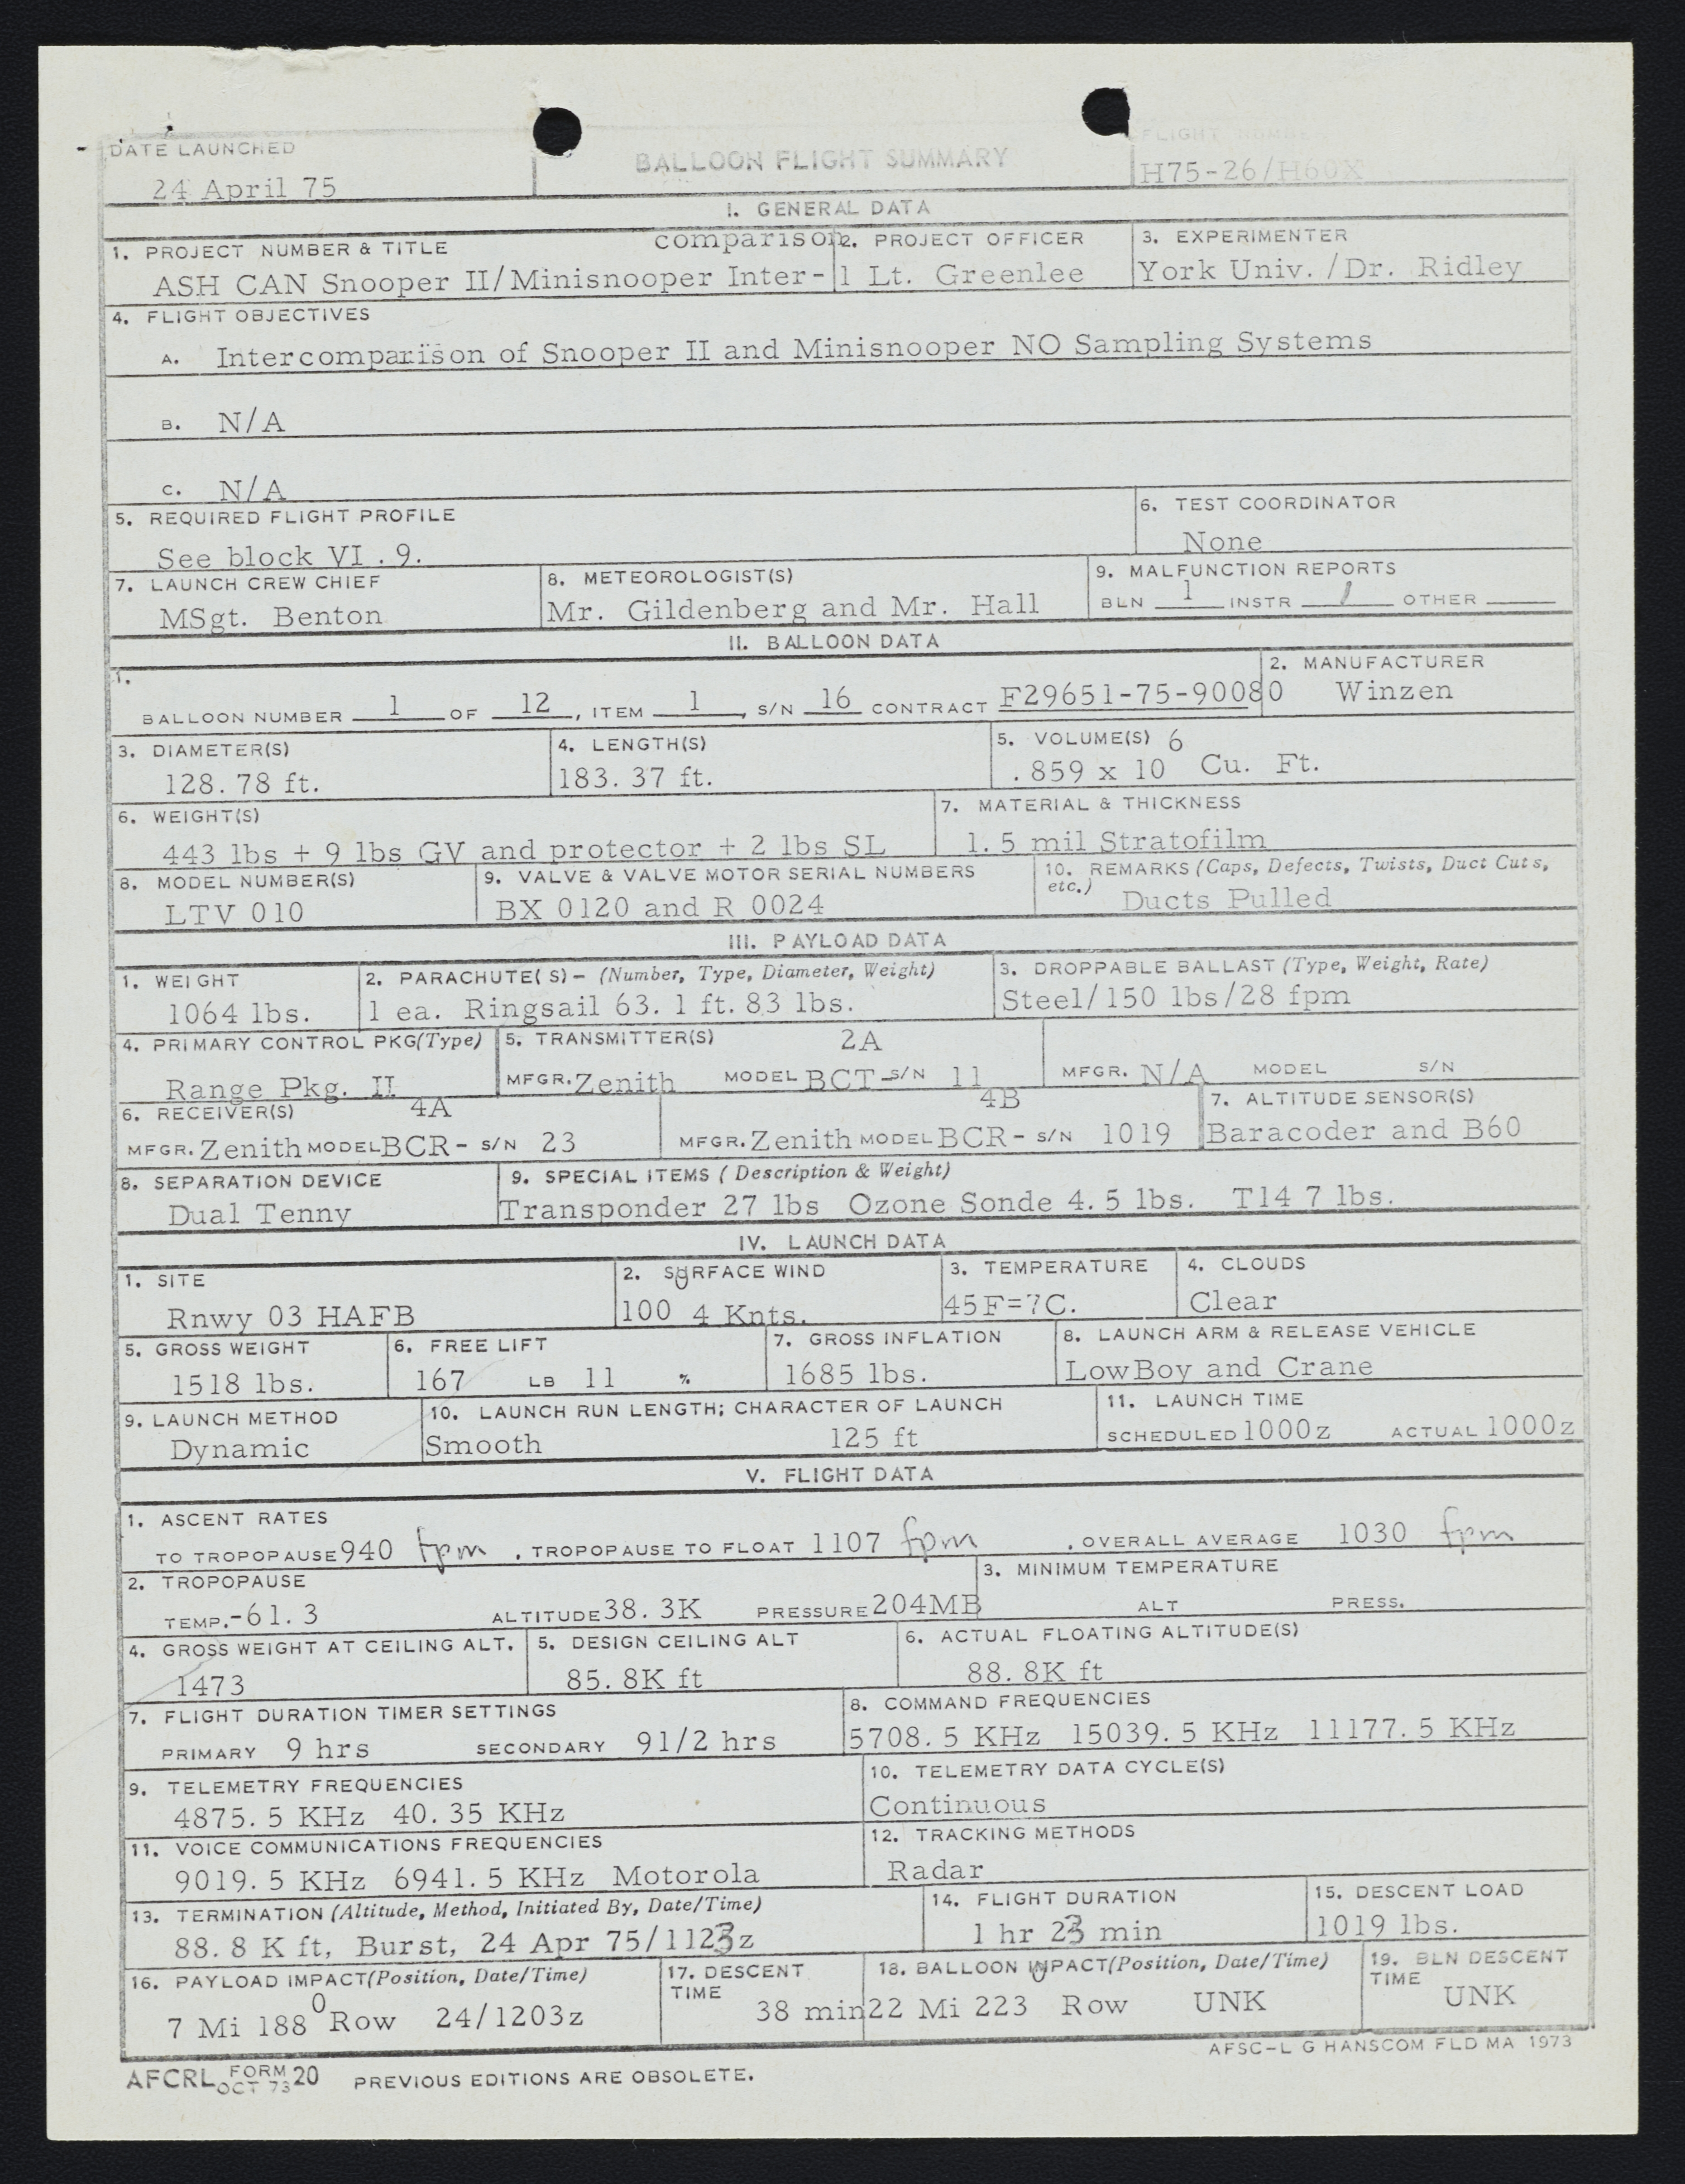 DATE LAUNCHED
24 April 75
BALLOON FLIGHT SUMMARY
FLIGHT NUMBER
H75-26/H60X
I. GENERAL DATA
1. PROJECT NUMBER & TITLE
comparison
ASH CAN Snooper II/Minisnooper Inter-
2. PROJECT OFFICER
1 Lt. Greenlee
3. EXPERIMENTER
York Univ. /Dr. Ridley
4. FLIGHT OBJECTIVES
A. Intercomparison of Snooper II and Minisnooper NO Sampling Systems
B. N/A
C. N/A
5. REQUIRED FLIGHT PROFILE
See block VI .9.
6. TEST COORDINATOR
None
7. LAUNCH CREW CHIEF
MSgt. Benton
8. METEOROLOGIST(S)
Mr. Gildenberg and Mr. Hall
9. MALFUNCTION REPORTS
BLN 1 INSTR / OTHER
II. BALLOON DATA
1.
BALLOON NUMBER 1 OF 12, ITEM 1, S/N 16 CONTRACT F29651-75-90080
2. MANUFACTURER
Winzen
3. DIAMETER(S)
128.78 ft.
4. LENGTH(S)
183.37 ft.
5. VOLUME(S) 6
.859 x 10 Cu. Ft.
6. WEIGHT(S)
443 lbs + 9 lbs GV and protector + 2 lbs SL
7. MATERIAL & THICKNESS
1.5 mil Stratofilm
8. MODEL NUMBER(S)
LTV 010
9. VALVE & VALVE MOTOR SERIAL NUMBERS
BX 0120 and R 0024
10. REMARKS (Caps, Defects, Twists, Duct Cuts,
etc.) Ducts Pulled
III. PAYLOAD DATA
1. WEIGHT
1064 lbs.
2. PARACHUTE(S)- (Number, Type, Diameter, Weight)
1 ea. Ringsail 63.1 ft. 83 lbs.
3. DROPPABLE BALLAST (Type, Weight, Rate)
Steel/150 lbs/28 fpm
4. PRIMARY CONTROL PKG(Type)
Range Pkg. II
5. TRANSMITTER(S) 2A
MFGR. Zenith MODEL BCT- S/N 11
MFGR. N/A MODEL S/N
6. RECEIVER(S) 4A
MFGR. Zenith MODEL BCR- S/N 23
4B
MFGR. Zenith MODEL BCR- S/N 1019
7. ALTITUDE SENSOR(S)
Baracoder and B60
8. SEPARATION DEVICE
Dual Tenny
9. SPECIAL ITEMS (Description & Weight)
Transponder 27 lbs Ozone Sonde 4.5 lbs. T14 7 lbs.
IV. LAUNCH DATA
1. SITE
Rnwy 03 HAFB
2. SURFACE WIND
100 0 4 Knts.
3. TEMPERATURE
45F=7C.
4. CLOUDS
Clear
5. GROSS WEIGHT
1518 lbs.
6. FREE LIFT
167 LB 11 %
7. GROSS INFLATION
1685 lbs.
8. LAUNCH ARM & RELEASE VEHICLE
LowBoy and Crane
9. LAUNCH METHOD
Dynamic
10. LAUNCH RUN LENGTH; CHARACTER OF LAUNCH
Smooth 125 ft
11. LAUNCH TIME
SCHEDULED 1000z ACTUAL 1000z
V. FLIGHT DATA
1. ASCENT RATES
TO TROPOPAUSE 940 fpm , TROPOPAUSE TO FLOAT 1107 fpm , OVERALL AVERAGE 1030 fpm
2. TROPOPAUSE
TEMP. -61.3 ALTITUDE 38.3K PRESSURE 204MB
3. MINIMUM TEMPERATURE
ALT PRESS.
4. GROSS WEIGHT AT CEILING ALT.
1473
5. DESIGN CEILING ALT
85.8K ft
6. ACTUAL FLOATING ALTITUDE(S)
88.8K ft
7. FLIGHT DURATION TIMER SETTINGS
PRIMARY 9 hrs SECONDARY 91/2 hrs
8. COMMAND FREQUENCIES
5708.5 KHz 15039.5 KHz 11177.5 KHz
9. TELEMETRY FREQUENCIES
4875.5 KHz 40.35 KHz
10. TELEMETRY DATA CYCLE(S)
Continuous
11. VOICE COMMUNICATIONS FREQUENCIES
9019.5 KHz 6941.5 KHz Motorola
12. TRACKING METHODS
Radar
13. TERMINATION (Altitude, Method, Initiated By, Date/Time)
88.8 K ft, Burst, 24 Apr 75/1123z
14. FLIGHT DURATION
1 hr 23 min
15. DESCENT LOAD
1019 lbs.
16. PAYLOAD IMPACT(Position, Date/Time)
7 Mi 188 0 Row 24/1203z
17. DESCENT
TIME
38 min
18. BALLOON IMPACT(Position, Date/Time)
22 Mi 223 0 Row UNK
19. BLN DESCENT
TIME
UNK
AFSC-L G HANSCOM FLD MA 1973
AFCRL FORM OCT 73 20 PREVIOUS EDITIONS ARE OBSOLETE.